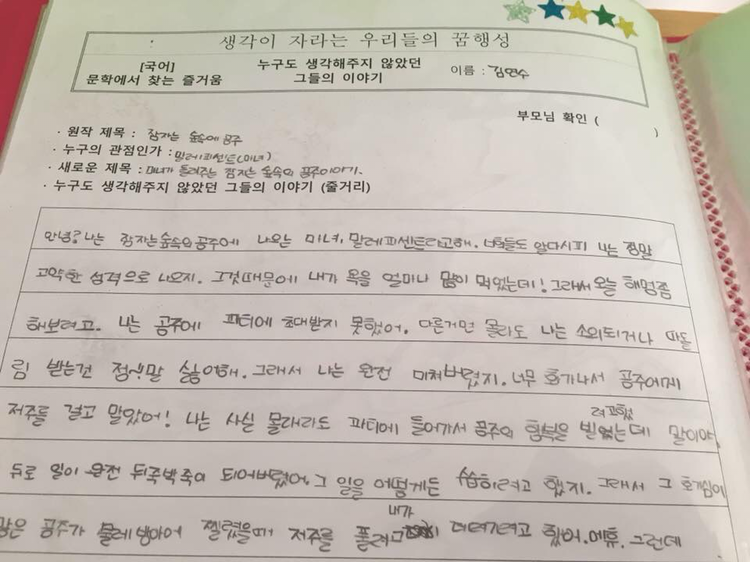 : 생각이 자라는 우리들의 꿈행성
[국어]
문학에서 찾는 즐거움
누구도 생각해주지 않았던
그들의 이야기
이름 : 김연수
부모님 확인 ( )
· 원작 제목 : 잠자는 숲속에 공주
· 누구의 관점인가 : 말레피센트(미녀)
· 새로운 제목 : 미녀가 들려주는 잠자는 숲속의 공주이야기.
· 누구도 생각해주지 않았던 그들의 이야기 (줄거리)
안녕? 나는 잠자는숲속의공주에 나오는 미녀, 말레피센트라고해. 너희들도 알다시피 나는 정말
고약한 성격으로 나오지. 그것때문에 내가 욕을 얼마나 많이 먹었는데! 그래서 오늘 해명좀
해보려고. 나는 공주에 파티에 초대받지 못했어, 다른거면 몰라도 나는 소외되거나 따돌
림 받는건 정~말 싫어해. 그래서 나는 완전 미쳐버렸지. 너무 화가나서 공주에게
저주를 걸고 말았어! 나는 사실 몰래라도 파티에 들어가서 공주의 행복을 빌려고했는데 말이야,
뒤로 일이 완전 뒤죽박죽이 되어버렸어. 그 일을 어떻게든 수습하려고 했지. 그래서 그 호기심이
많은 공주가 물레방아에 찔렸을때 저주를 내가 풀려고 데려가려고 했어. 에휴. 그런데